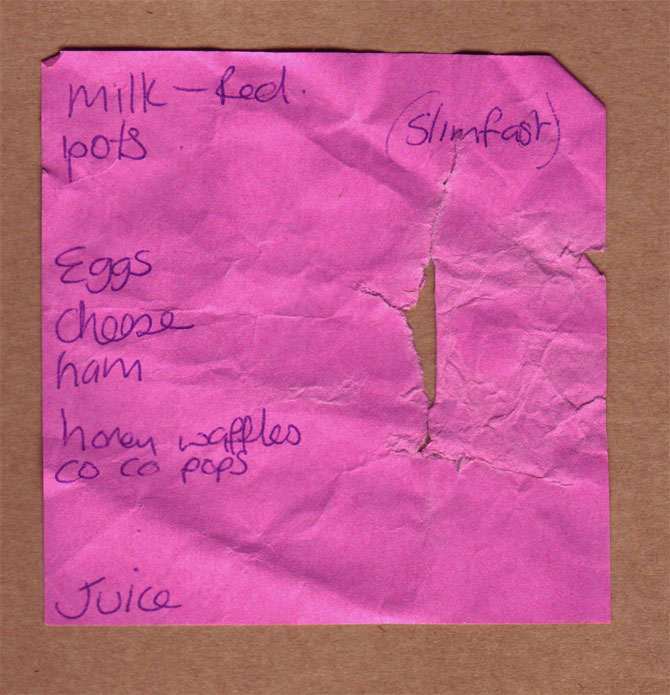 Milk - Red.
(Slimfast)
pots
Eggs
Cheese
ham
honey waffles
co co pops
Juice